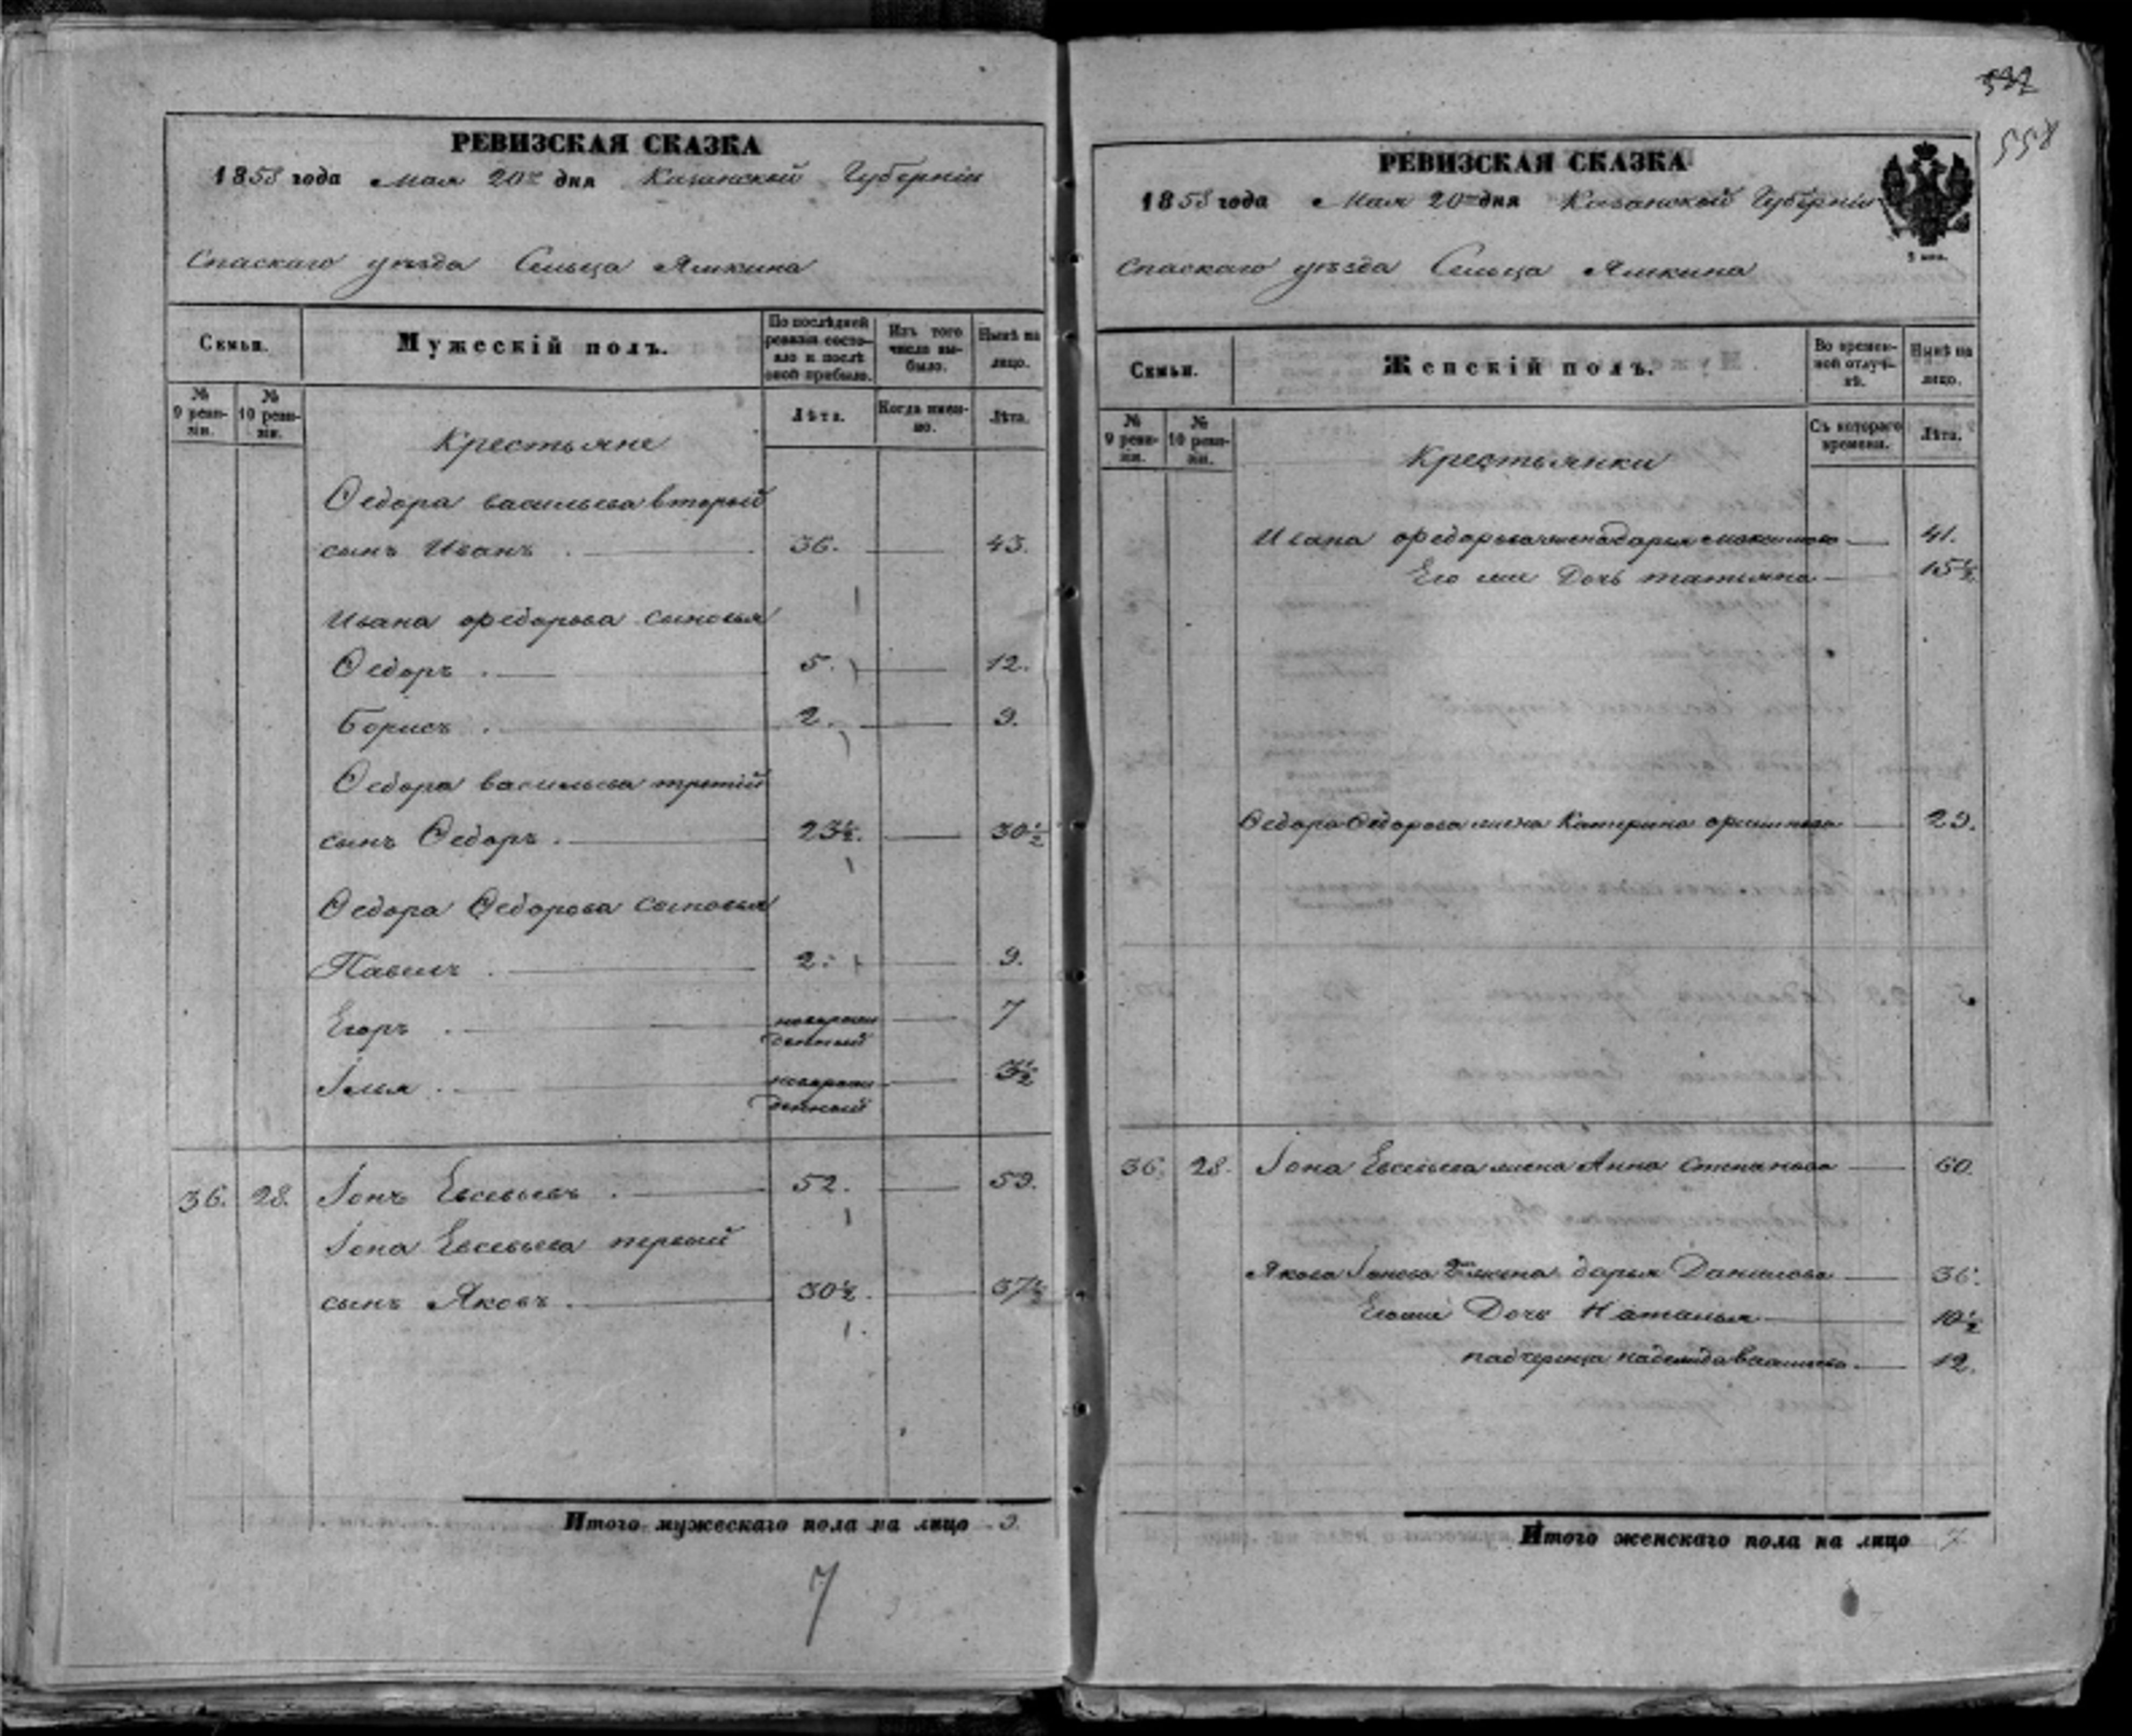 РЕВИЗСКАЯ СКАЗКА
1858 года Мая 20го дня Казанской Губерніи
Спаскаго уѣзда Сельца Ямкина
Семьи.
Мужескій полъ.
По послѣдней ревизіи состояло и послѣ оной прибыло.
Изъ того числа выбыло.
Нынѣ на лицо.
№ 9 ревизіи.
№ 10 ревизіи.
Лѣта.
Когда именно.
Лѣта.
Крестьяне
Ѳедора Васильева вторый
сынъ Иванъ . 36. 43.
Ивана Федорова сыновья
Ѳедоръ . 5. 12.
Борисъ . 2. 9.
Ѳедора Васильева третій
сынъ Ѳедоръ . 23½. 30½
Ѳедора Ѳедорова сыновья
Павелъ . 2. 9.
Егоръ . новорожденный 7
Ілья . новорожденный 3½
36. 28. Іонъ Евсевьевъ . 52. 59.
Іона Евсевьева первый
сынъ Яковъ . 30½. 37½
Итого мужескаго пола на лицо 9.
7
537
558
РЕВИЗСКАЯ СКАЗКА
1858 года Мая 20го дня Казанской Губерніи
3 коп.
Спаскаго уѣзда Сельца Ямкина
Семьи.
Женскій полъ.
Во временной отлучкѣ.
Нынѣ на лицо.
№ 9 ревизіи.
№ 10 ревизіи.
Съ котораго времени.
Лѣта.
Крестьянки
Ивана Федорова жена Дарья Максимова 41.
Его же Дочь Татьяна 15½.
Ѳедора Ѳедорова жена Катерина 29.
36. 28. Іона Евсевьева жена Анна Степанова 60.
Якова Іонова 2я жена Дарья Данилова 36.
Егоже Дочь Наталья 10½
падчерица Надежда 12.
Итого женскаго пола на лицо 7